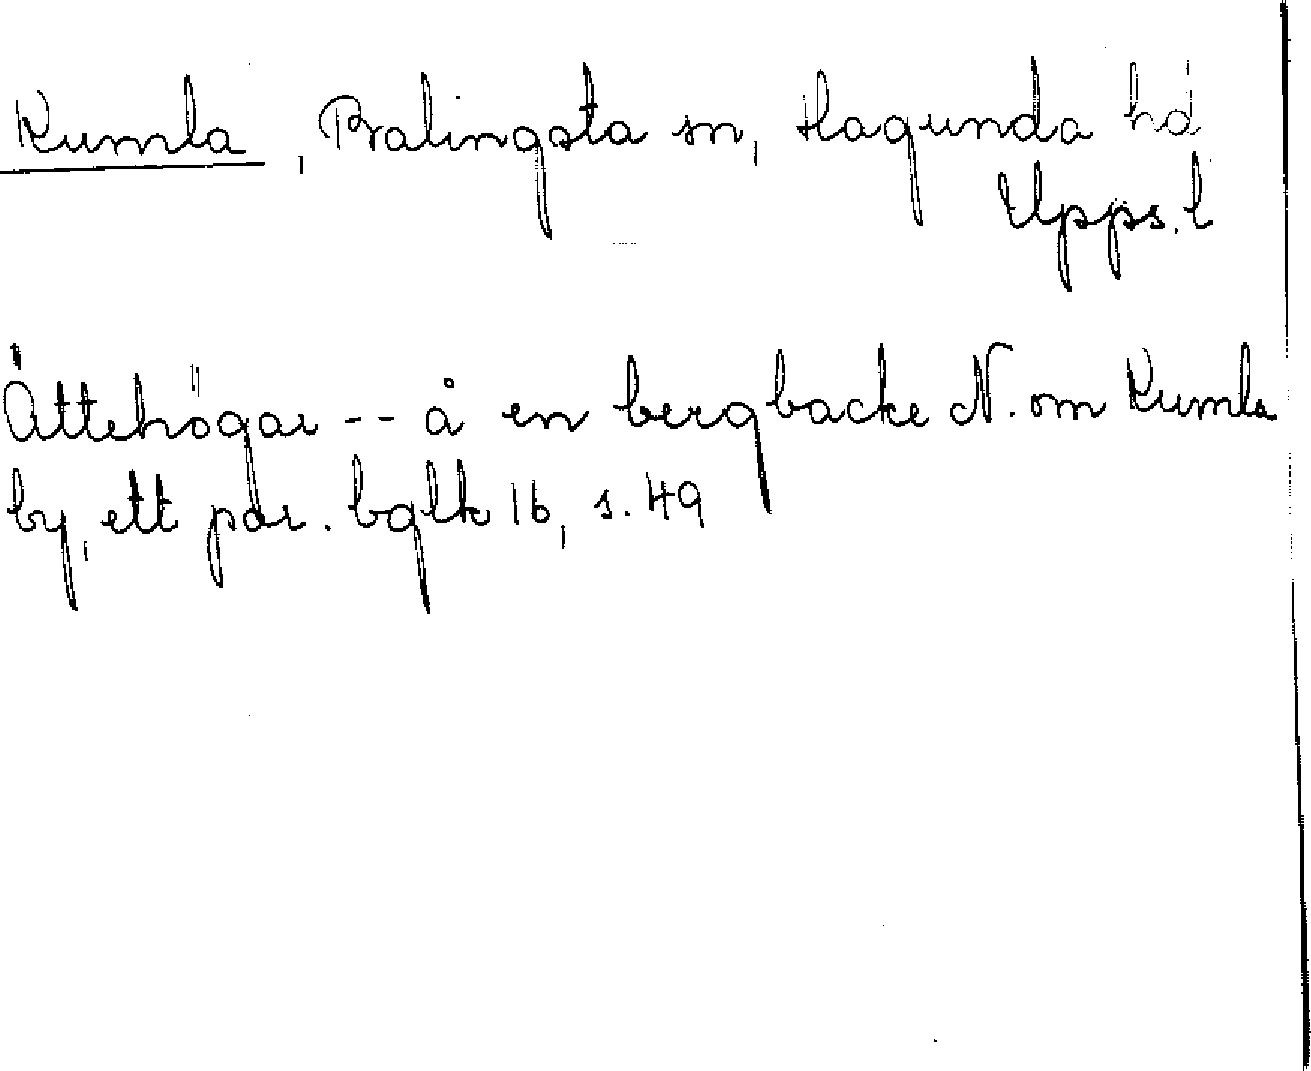 Kumla, Bralingsta sn, Hagunda hd
Upps. l
Ättehögar -- å en bergbacke N. om Kumla
by, ett par. bglk 16, s. 49